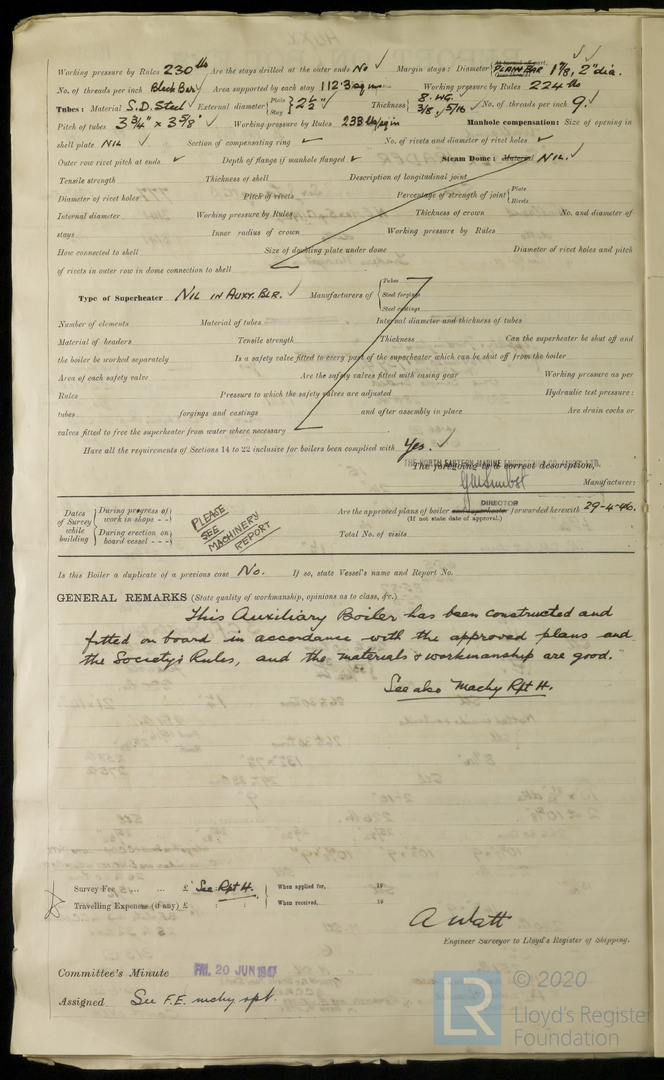 Working pressure by Rules 230 lbs Are the stays drilled at the outer ends No Margin stays: Diameter PLAIN BAR 1 7/8, 2" dia.
No. of threads per inch Black Bar Area supported by each stay 112.3 sq ins Working pressure by Rules 224 lbs
Tubes: Material S.D. Steel External diameter { Plain Stay } 2 1/2" Thickness 8. WG. 3/8, 5/16 No. of threads per inch 9.
Pitch of tubes 3 3/4" x 3 5/8" Working pressure by Rules 233 lbs/sq in Manhole compensation: Size of opening in
shell plate NIL Section of compensating ring No. of rivets and diameter of rivet holes
Outer row rivet pitch at ends Depth of flange if manhole flanged Steam Dome: Material NIL.
Tensile strength Thickness of shell Description of longitudinal joint
Diameter of rivet holes Pitch of rivets Percentage of strength of joint { Plate Rivets
Internal diameter Working pressure by Rules Thickness of crown No. and diameter of
stays Inner radius of crown Working pressure by Rules
How connected to shell Size of doubling plate under dome Diameter of rivet holes and pitch
of rivets in outer row in dome connection to shell
Type of Superheater NIL IN AUXY. BLR. Manufacturers of { Tubes Steel forgings Steel castings
Number of elements Material of tubes Internal diameter and thickness of tubes
Material of headers Tensile strength Thickness Can the superheater be shut off and
the boiler be worked separately Is a safety valve fitted to every part of the superheater which can be shut off from the boiler
Area of each safety valve Are the safety valves fitted with easing gear Working pressure as per
Rules Pressure to which the safety valves are adjusted Hydraulic test pressure:
tubes forgings and castings and after assembly in place Are drain cocks or
valves fitted to free the superheater from water where necessary
Have all the requirements of Sections 14 to 22 inclusive for boilers been complied with Yes.
THE NORTH EASTERN MARINE ENGINEERING CO. LTD.
The foregoing is a correct description,
Manufacturer:
DIRECTOR
Dates of Survey while building { During progress of work in shops - - } { During erection on board vessel - - - } PLEASE SEE MACHINERY REPORT
Are the approved plans of boiler and superheater forwarded herewith 29-4-46.
(If not state date of approval.)
Total No. of visits
Is this Boiler a duplicate of a previous case No. If so, state Vessel's name and Report No.
GENERAL REMARKS (State quality of workmanship, opinions as to class, &c.)
This Auxiliary Boiler has been constructed and
fitted on board in accordance with the approved plans and
the Society's Rules, and the materials & workmanship are good.
See also Machy Rpt H.
Survey Fee ... ... £ See Rpt H. When applied for, 19
Travelling Expenses (if any) £ : : When received, 19
A Watt
Engineer Surveyor to Lloyd's Register of Shipping.
Committee's Minute FRI. 20 JUN 1947
Assigned See F.E. machy rpt.
LR
© 2020
Lloyd's Register
Foundation